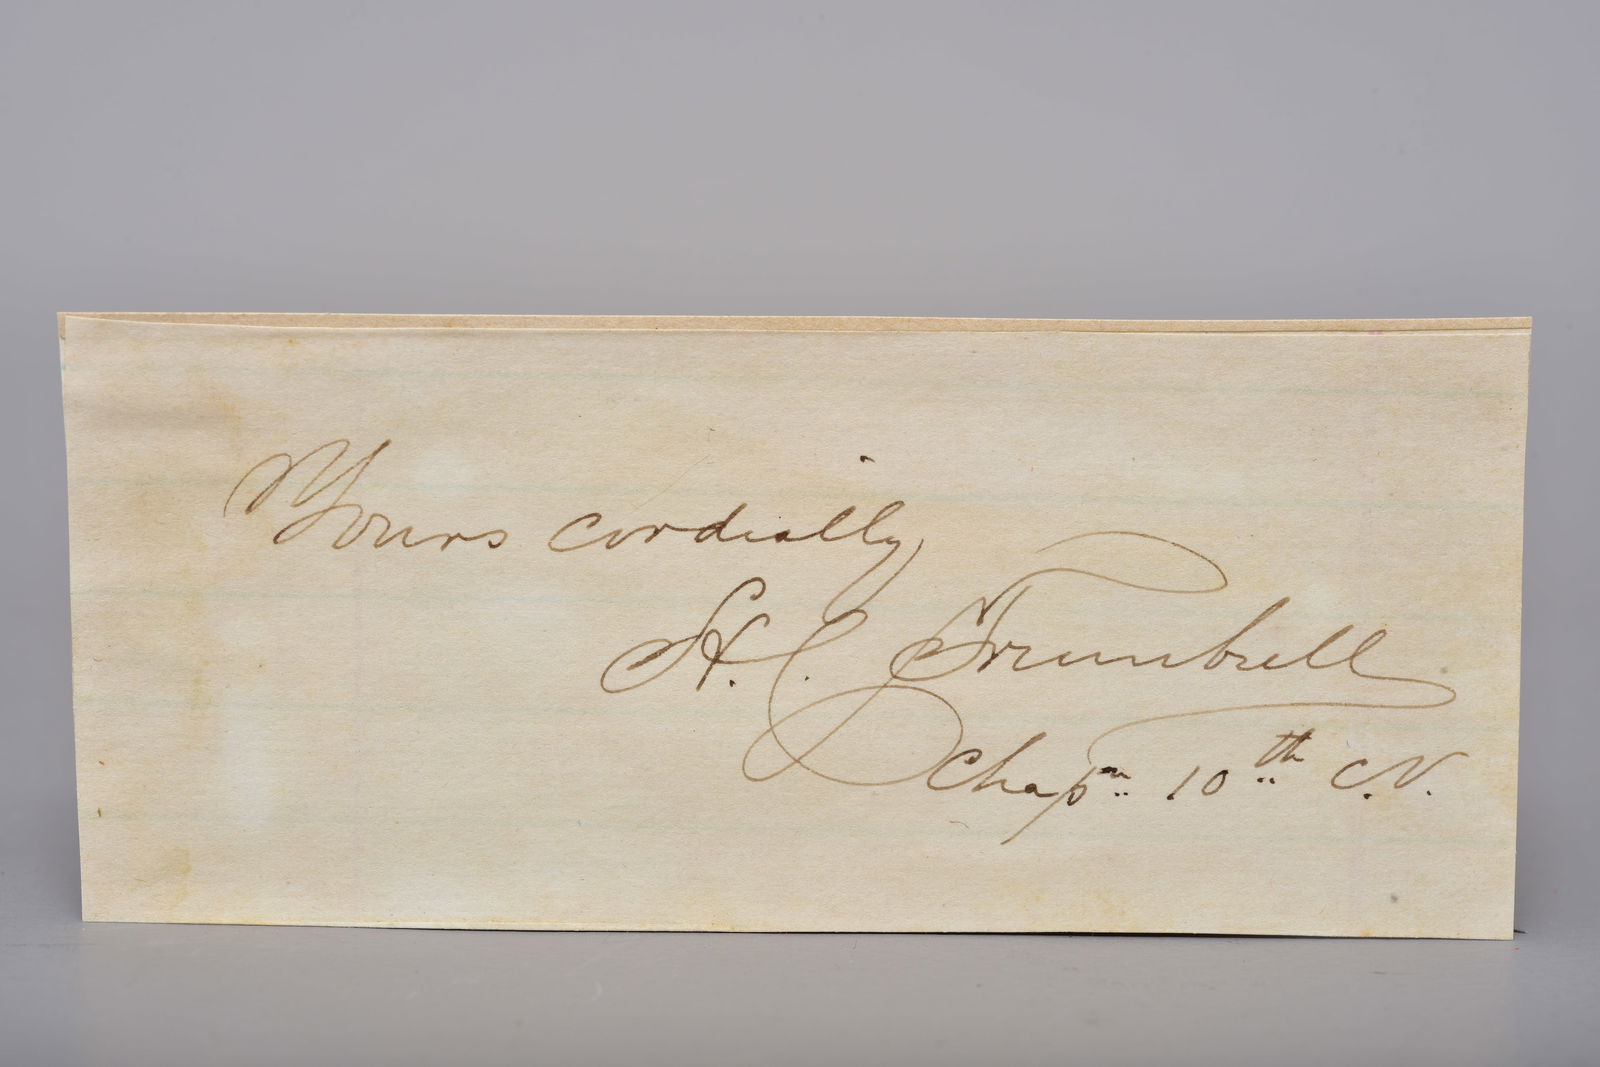 Yours cordially
H. C. Trumbull
Chapn 10th C.V.